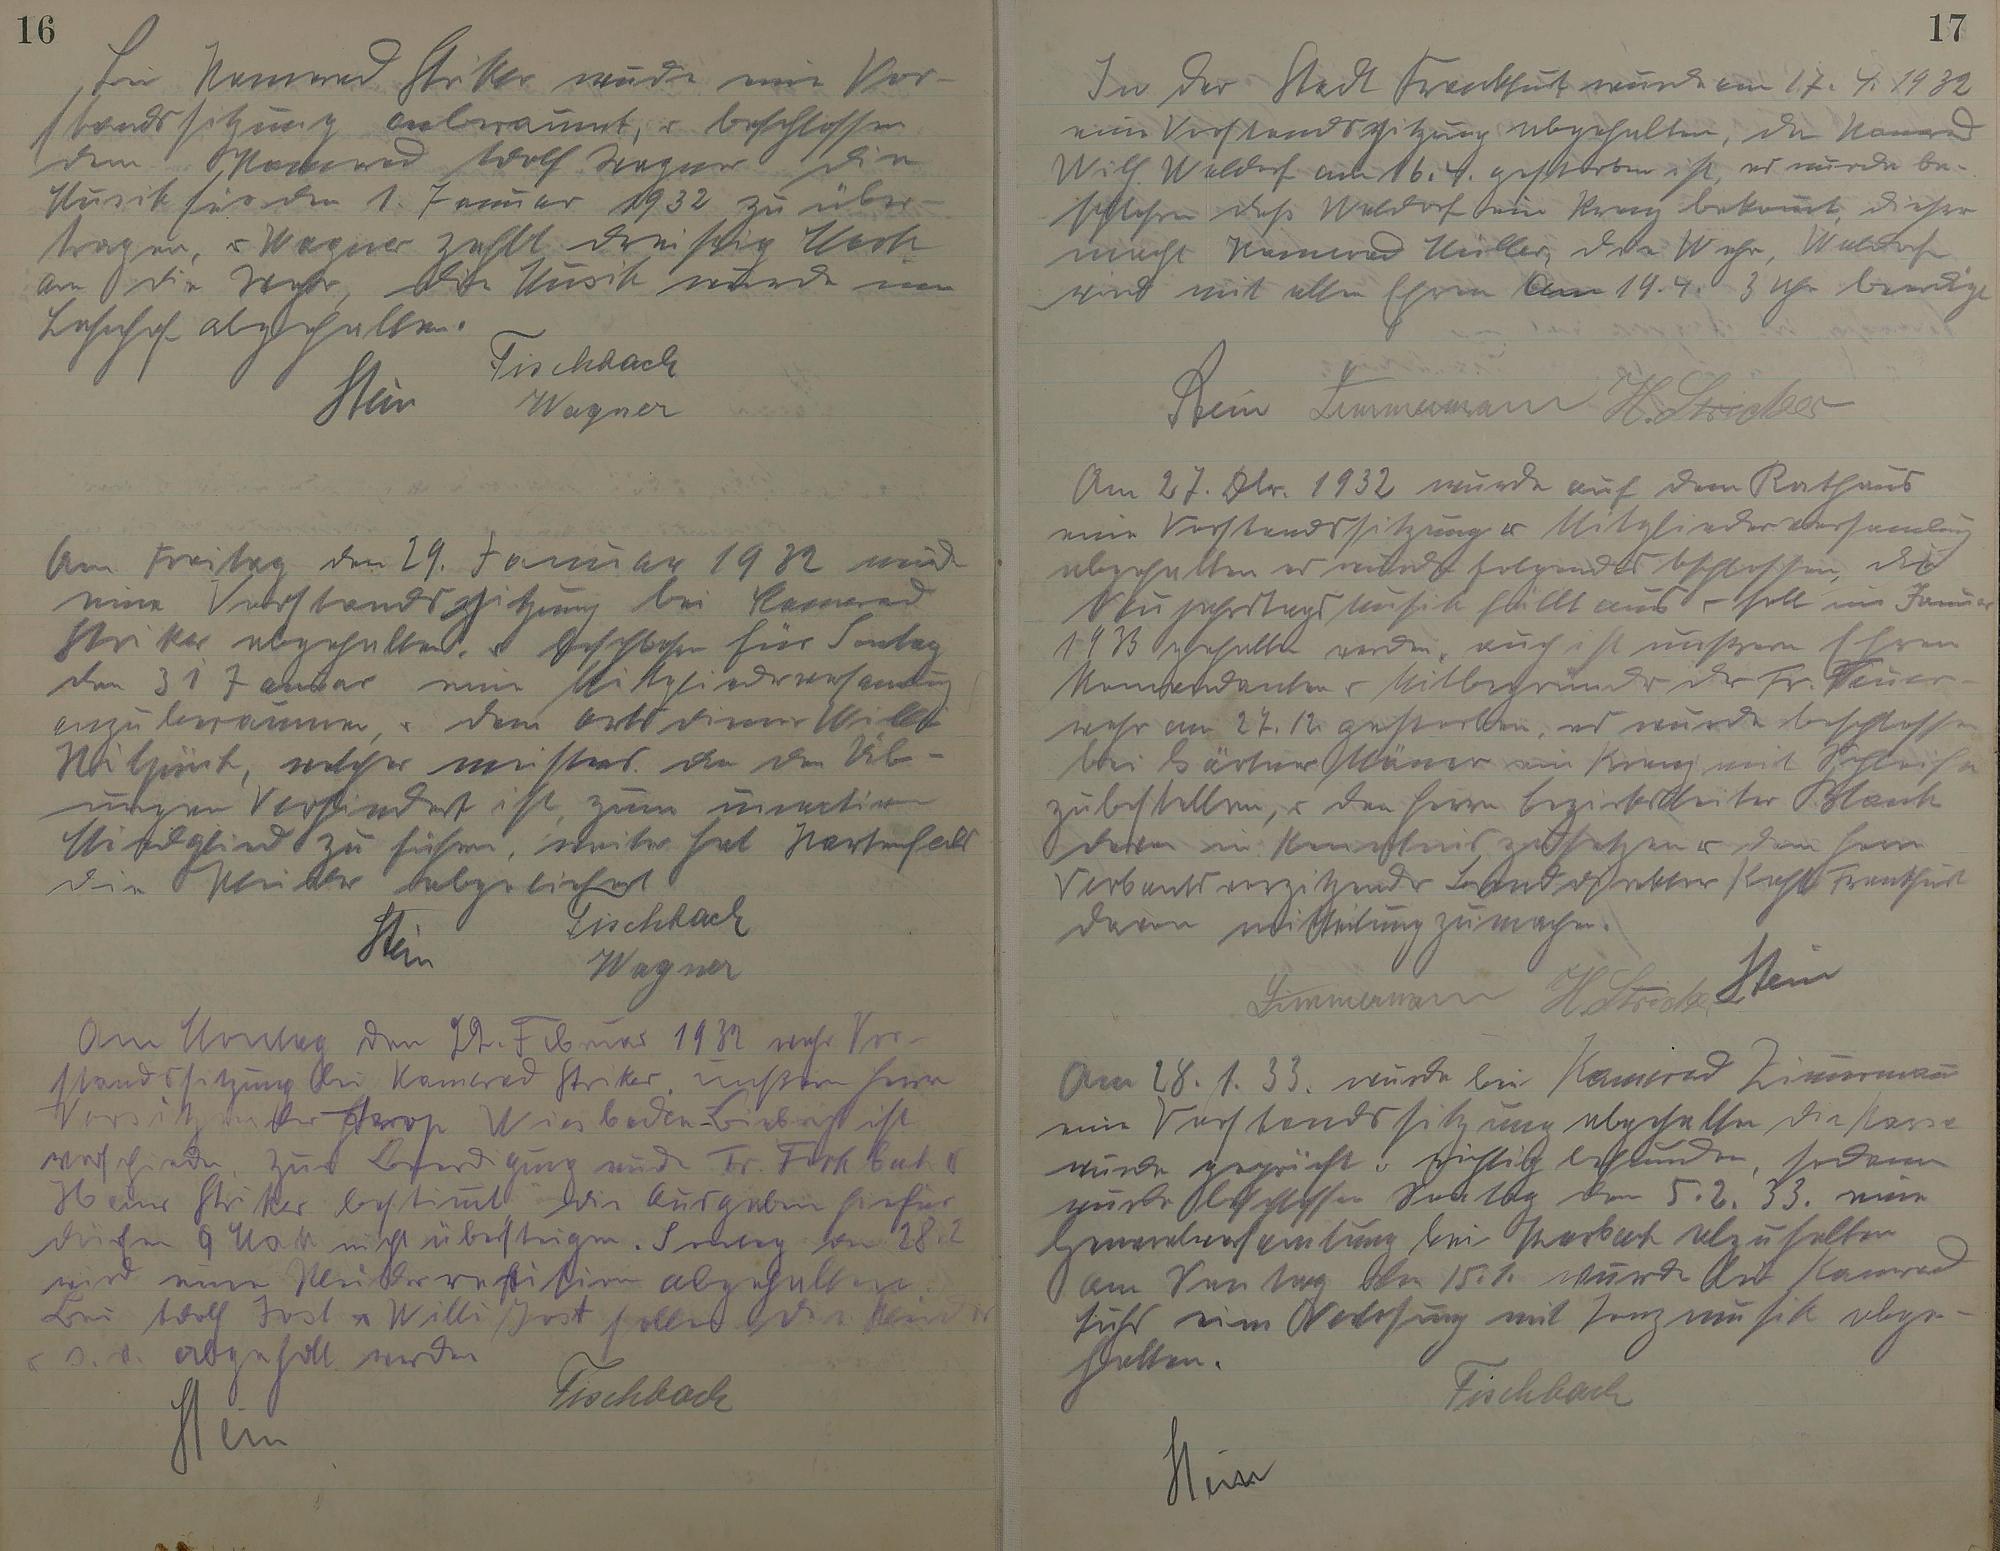 16
Bei Kamerad Striker wurde eine Vor-
standssitzung anberaumt, u beschlossen
dem Kamerad Adolf Wagner die
Musik für den 1. Januar 1932 zu über-
tragen, u Wagner zahlt dreisig Mark
an die Wehr, die Musik wurde im
abgehalten.
Fischbach
Stein Wagner
Am Freitag den 29. Januar 1932 wurde
eine Vorstandssitzung bei Kamerad
Striker abgehalten, u beschlossen für Sontag
den 31 Januar eine Mitgliederversamlung
anzuberaumen, u dem Ortsdiener Willi
welcher meistens an den Üb-
ungen Verhindert ist, zum inactiven
Mitdglied zu führen, weiter hat
die Kleider abgeliefert
Fischbach
Stein Wagner
Am Montag den 22. Februar 1932 wahr Vor-
standssitzung bei Kamerad Striker, unßern Herrn
Vorsitzender Wiesbaden-Biebrich ist
verschieden, zur Beerdigung wurde Fr. u
Heinr Striker bestimt die Ausgaben hiefür
dürfen 9 Mark nicht übersteigen. Sontag den 28.2
wird eine Kleiderrevision abgehalten.
Bei Adolf Jost u Willi Jost sollen die Kleider
u s. w. abgehollt werden
Fischbach
Stein
17
In der Stadt Frankfurt wurde am 17. 4. 1932
eine Vorstandssitzung abgehalten, da Kamerad
Wilh. Waldorf am 16. 4. gestorben ist, es wurde be-
schlossen daß Waldorf ein Kranz bekomt, dieser
macht Kamerad Müller, die Wehr, Waldorf
wird mit allen Ehren Am 19. 4. 3 Uhr beerdigt
Stein Zimmermann H. Stricker
Am 27. Dez. 1932 wurde auf dem Rathaus
eine Vorstandssitzung u Mitgliederversamlung
abgehalten es wurde folgendes beschlossen, die
Neujahrstags Musik fällt aus u soll im Januar
1933 gehalten werden, auch ist unsrem Ehren
Komandanten u Mitbegründer der Fr. Feuer-
wehr am 27. 12. gestorben, es wurde beschlossen
bei Gärtner ein Kranz mit Schleife
zubestellen, u den Herrn Bezirksleiter Blank
davon in Kenntnis zusetzen u dem Herrn
Verbantsvorzitzender Frankfurt
davon mitteilung zumachen.
Zimmermann H. Stricker Stein
Am 28. 1. 33. wurde bei Kamerad Zimermann
eine Vorstandssitzung abgehalten die Kasse
wurde geprüft u richtig befunden, sodann
wurde beschlossen Sontag den 5. 2. 33. eine
Generalversamlung bei abzuhalten
am Sontag den 15. 1. wurde bei Kamerad
Fuhr eine Verlosung mit Tanzmusik abge-
halten.
Fischbach
Stein